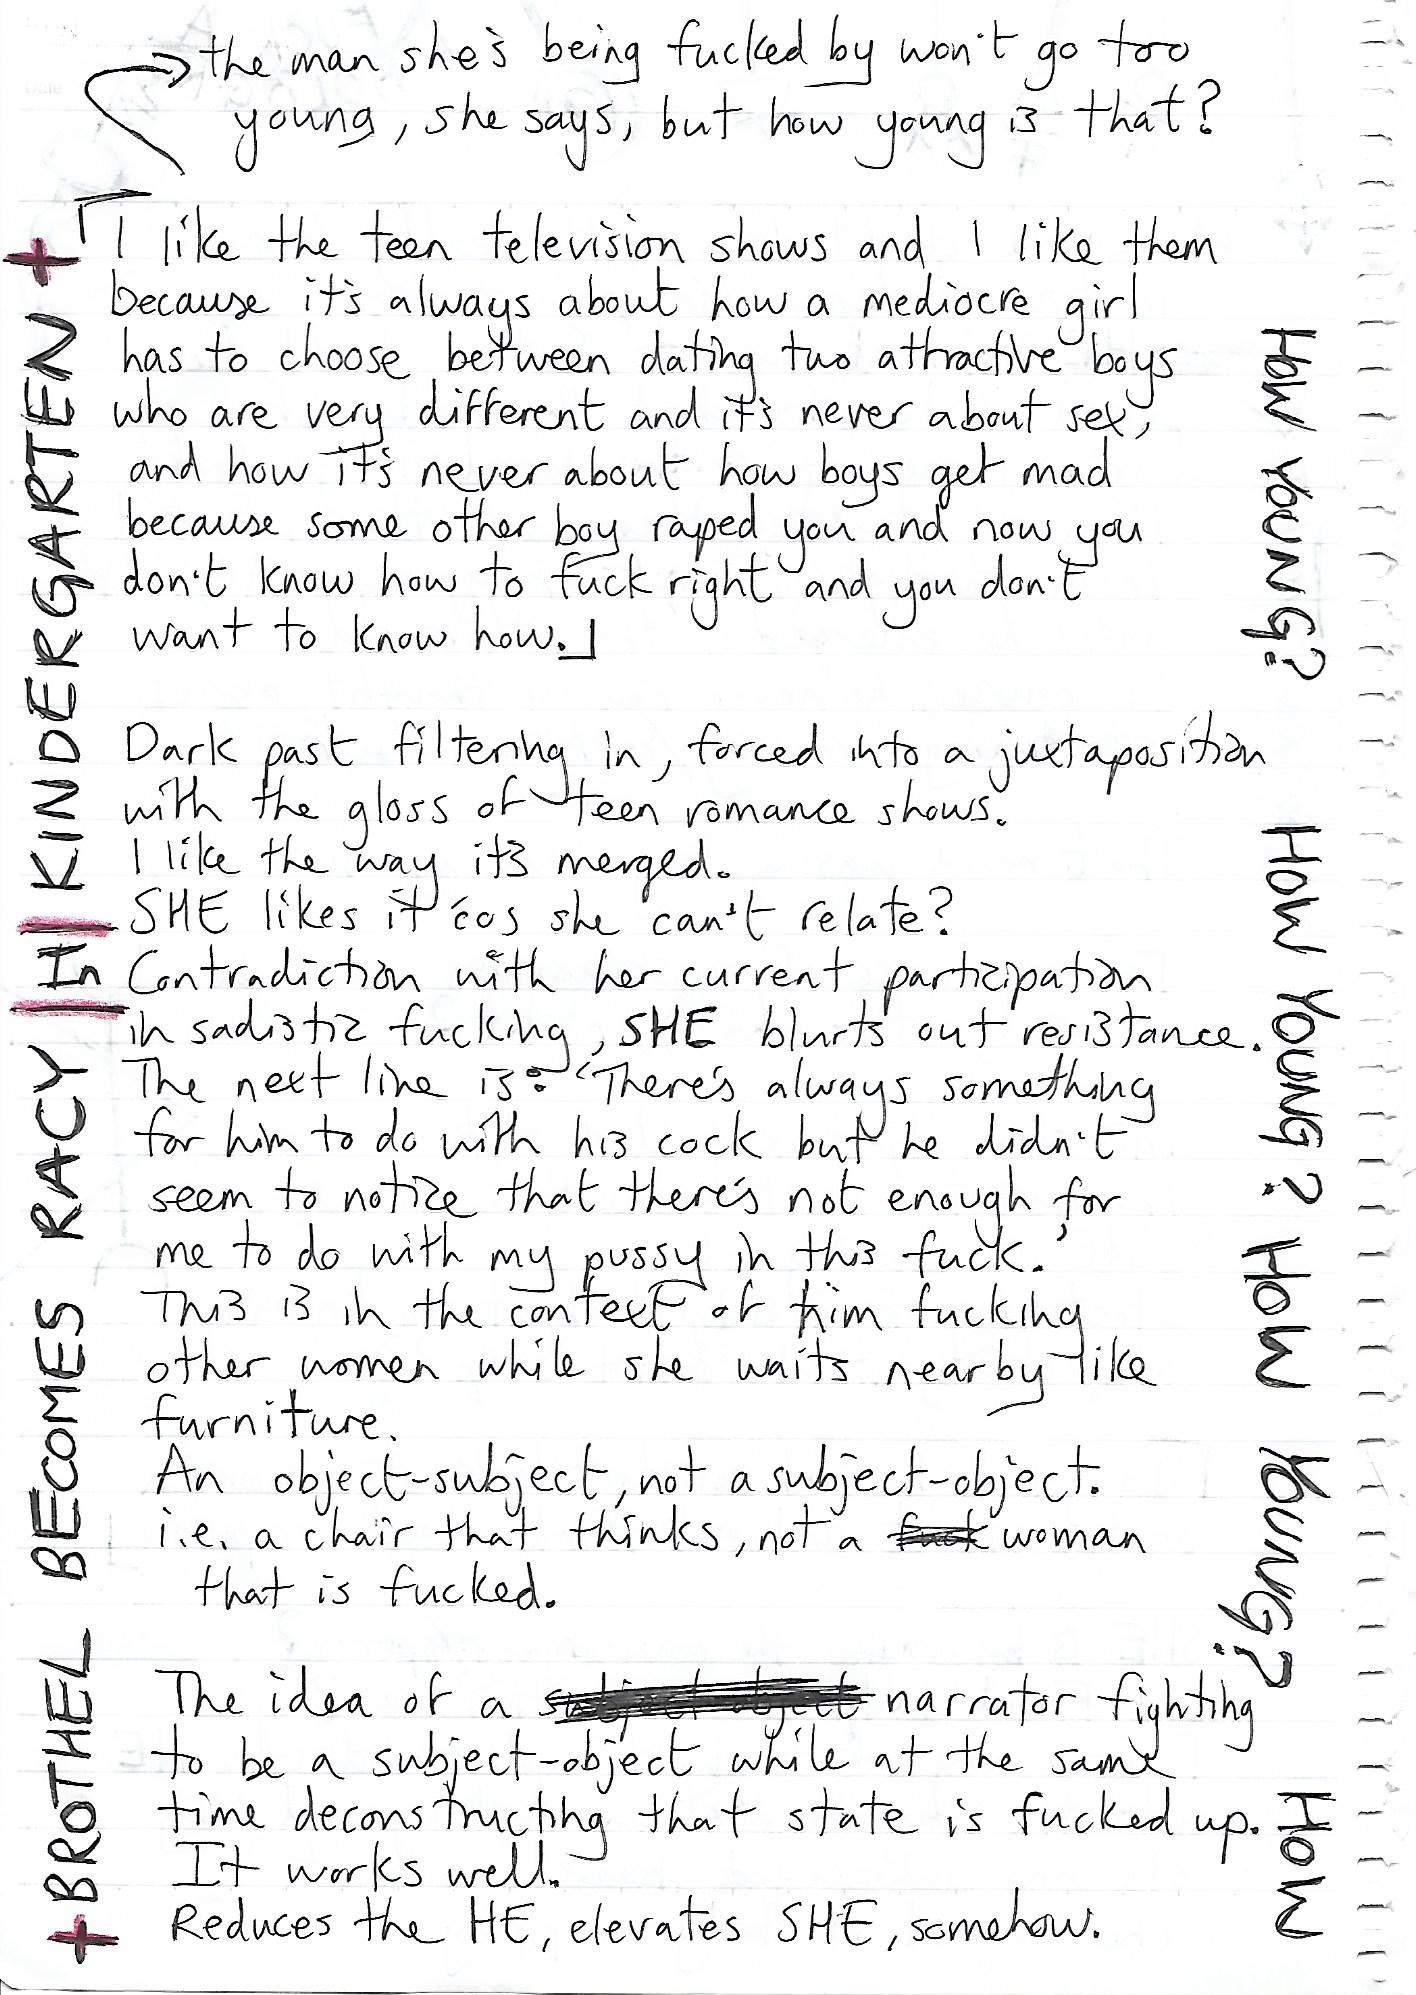 the man she's being fucked by won't go too
young, she says, but how young is that?
I like the teen television shows and I like them
because it's always about how a mediocre girl
has to choose between dating two attractive boys
who are very different and it's never about sex,
and how it's never about how boys get mad
because some other boy raped you and now you
don't know how to fuck right and you don't
want to know how.
Dark past filtering in, forced into a juxtaposition
with the gloss of teen romance shows.
I like the way it's merged.
SHE likes it 'cos she can't relate?
Contradiction with her current participation
in sadistic fucking, SHE blurts out resistance.
The next line is: 'There's always something
for him to do with his cock but he didn't
seem to notice that there's not enough for
me to do with my pussy in this fuck.'
This is in the context of him fucking
other women while she waits nearby like
furniture.
An object-subject, not a subject-object.
i.e. a chair that thinks, not a fuck woman
that is fucked.
The idea of a subject-object narrator fighting
to be a subject-object while at the same
time deconstructing that state is fucked up.
It works well.
Reduces the HE, elevates SHE, somehow.
+ BROTHEL BECOMES RACY |In| KINDERGARTEN +
HOW YOUNG? HOW YOUNG? HOW YOUNG? HOW